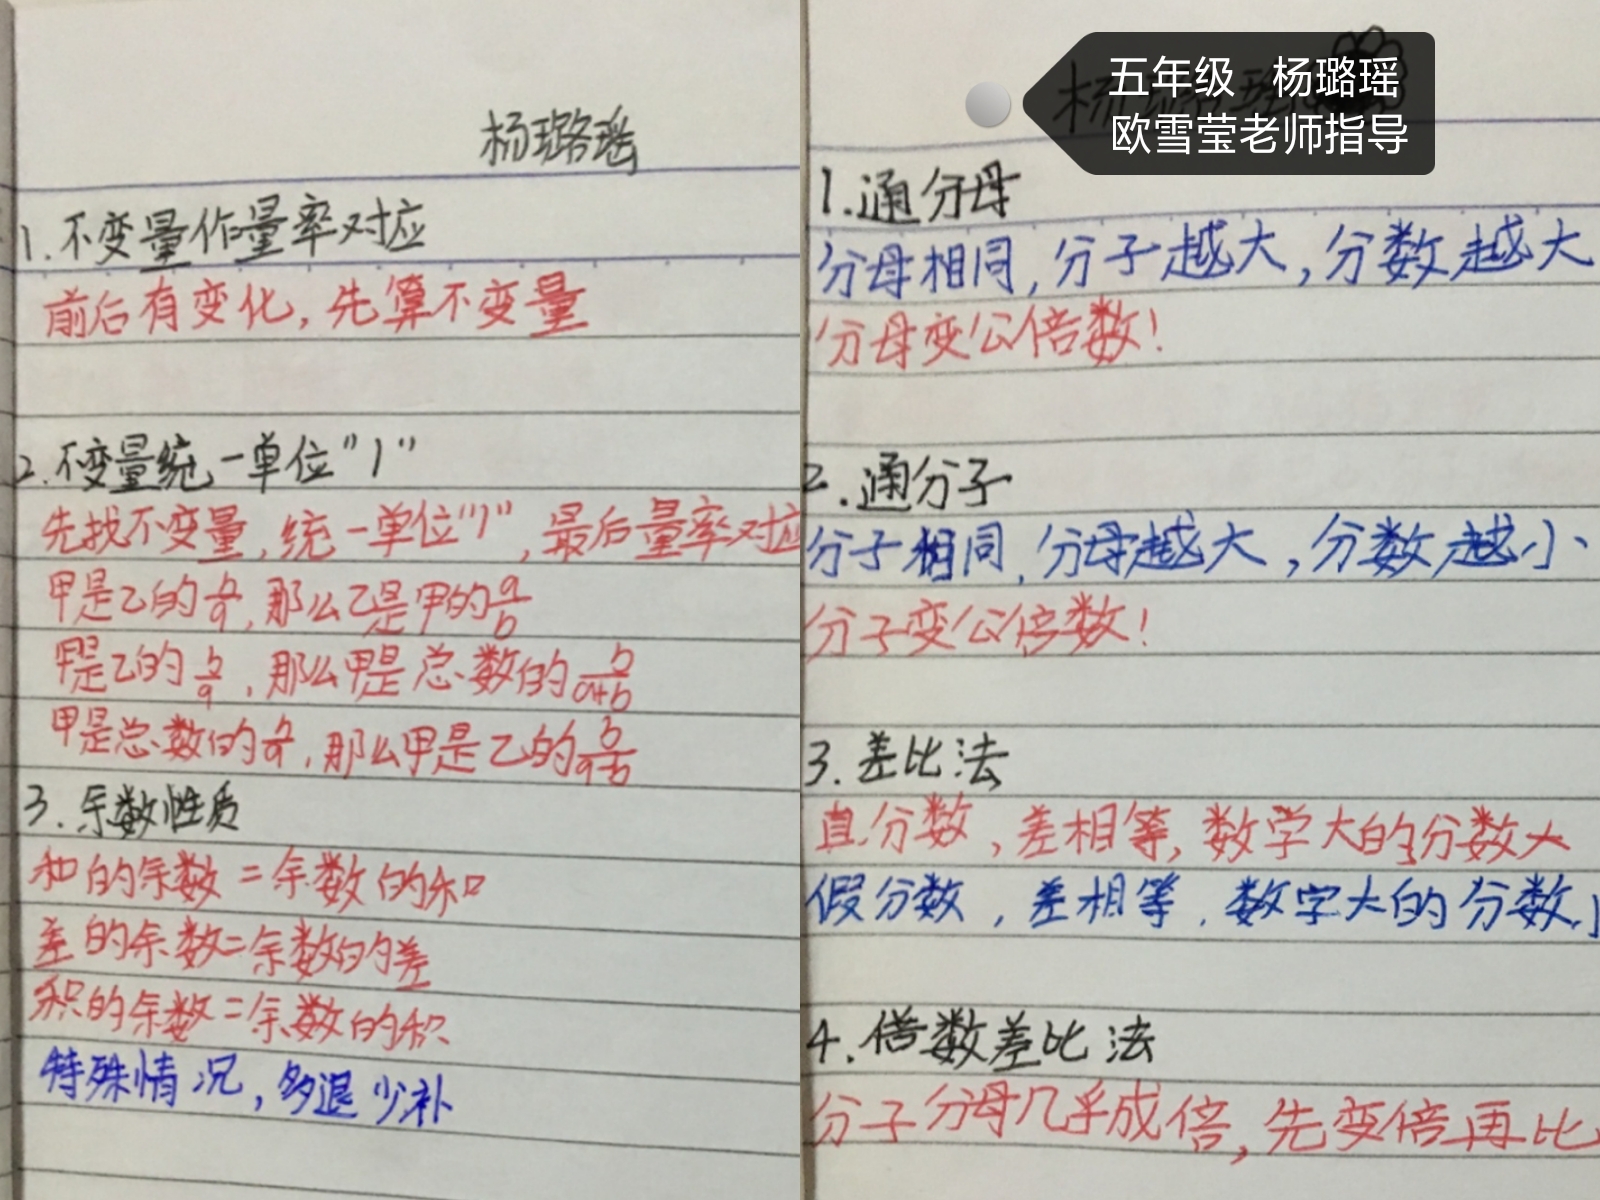 杨璐瑶
1.不变量作量率对应
前后有变化,先算不变量
2.不变量统一单位"1"
先找不变量,统一单位"1",最后量率对应
甲是乙的b/a,那么乙是甲的a/b
甲是乙的b/a,那么甲是总数的b/a+b
甲是总数的b/a,那么甲是乙的b/a-b
3.余数性质
和的余数=余数的和
差的余数=余数的差
积的余数=余数的积
特殊情况,多退少补
五年级 杨璐瑶
欧雪莹老师指导
1.通分母
分母相同,分子越大,分数越大
分母变公倍数!
2.通分子
分子相同,分母越大,分数越小
分子变公倍数!
3.差比法
真分数,差相等,数字大的分数大
假分数,差相等,数字大的分数小
4.倍数差比法
分子分母几乎成倍,先变倍再比